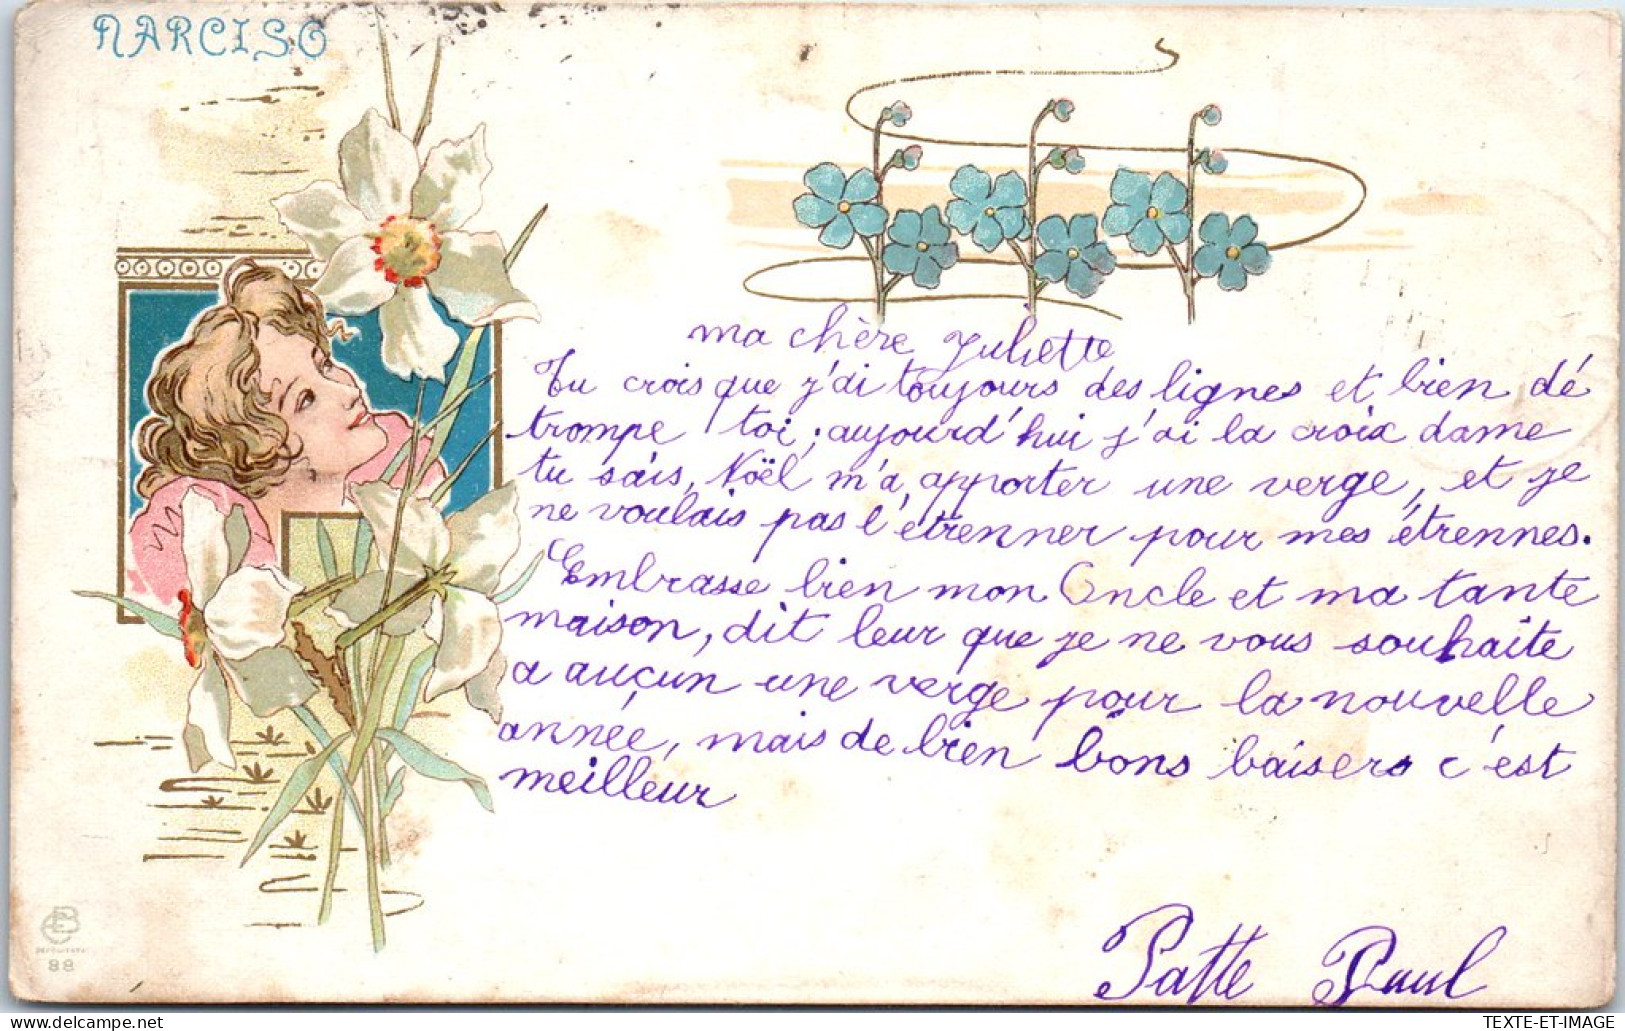 NARCISO
ma chère Juliette
Tu crois que j'ai toujours des lignes et bien dé
trompe toi; aujourd'hui j'ai la croix dame
tu sais, Noël m'a apporter une verge, et je
ne voulais pas l'étrenner pour mes étrennes.
Embrasse bien mon Oncle et ma tante
maison, dit leur que je ne vous souhaite
a auçun une verge pour la nouvelle
année, mais de bien bons baisers c'est
meilleur
Patte Paul
88
TEXTE-ET-IMAGE
delcampe.net